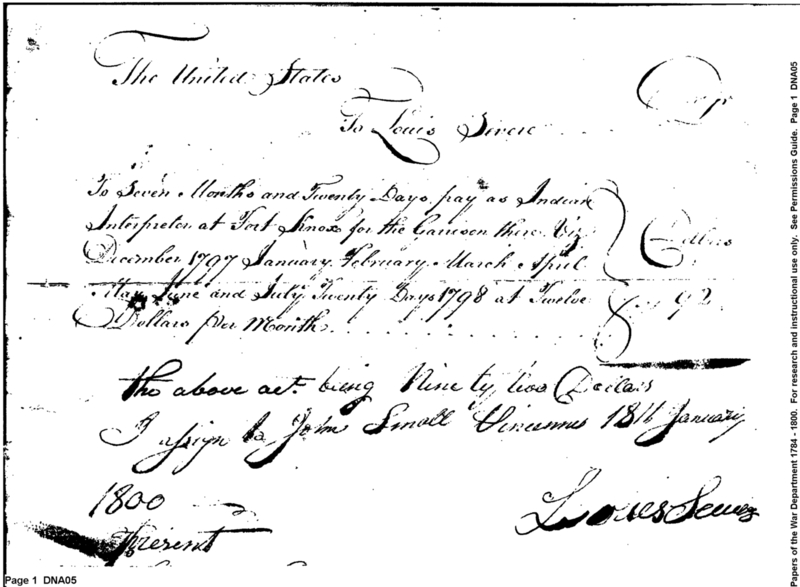 The United States
To Louis Severe Dr
To Seven Months and Twenty Days pay as Indian
Interpreter at Fort Knox for the Garrison there Viz
December 1797 January, February, March April
May June and July Twenty Days 1798 at Twelve
Dollars per Month
Dollars
92
the above act. being Ninety two Dollars
I assign to John Small Vincennes 18th January
1800
Present
Louis
Page 1 DNA05
Papers of the War Department 1784 - 1800. For research and instructional use only. See Permissions Guide. Page 1 DNA05